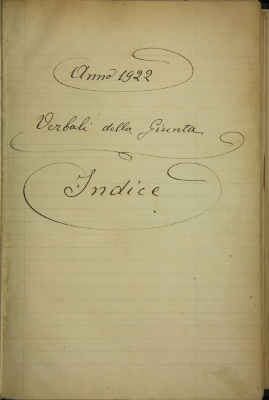 Anno 1922
Verbali della Giunta
Indice